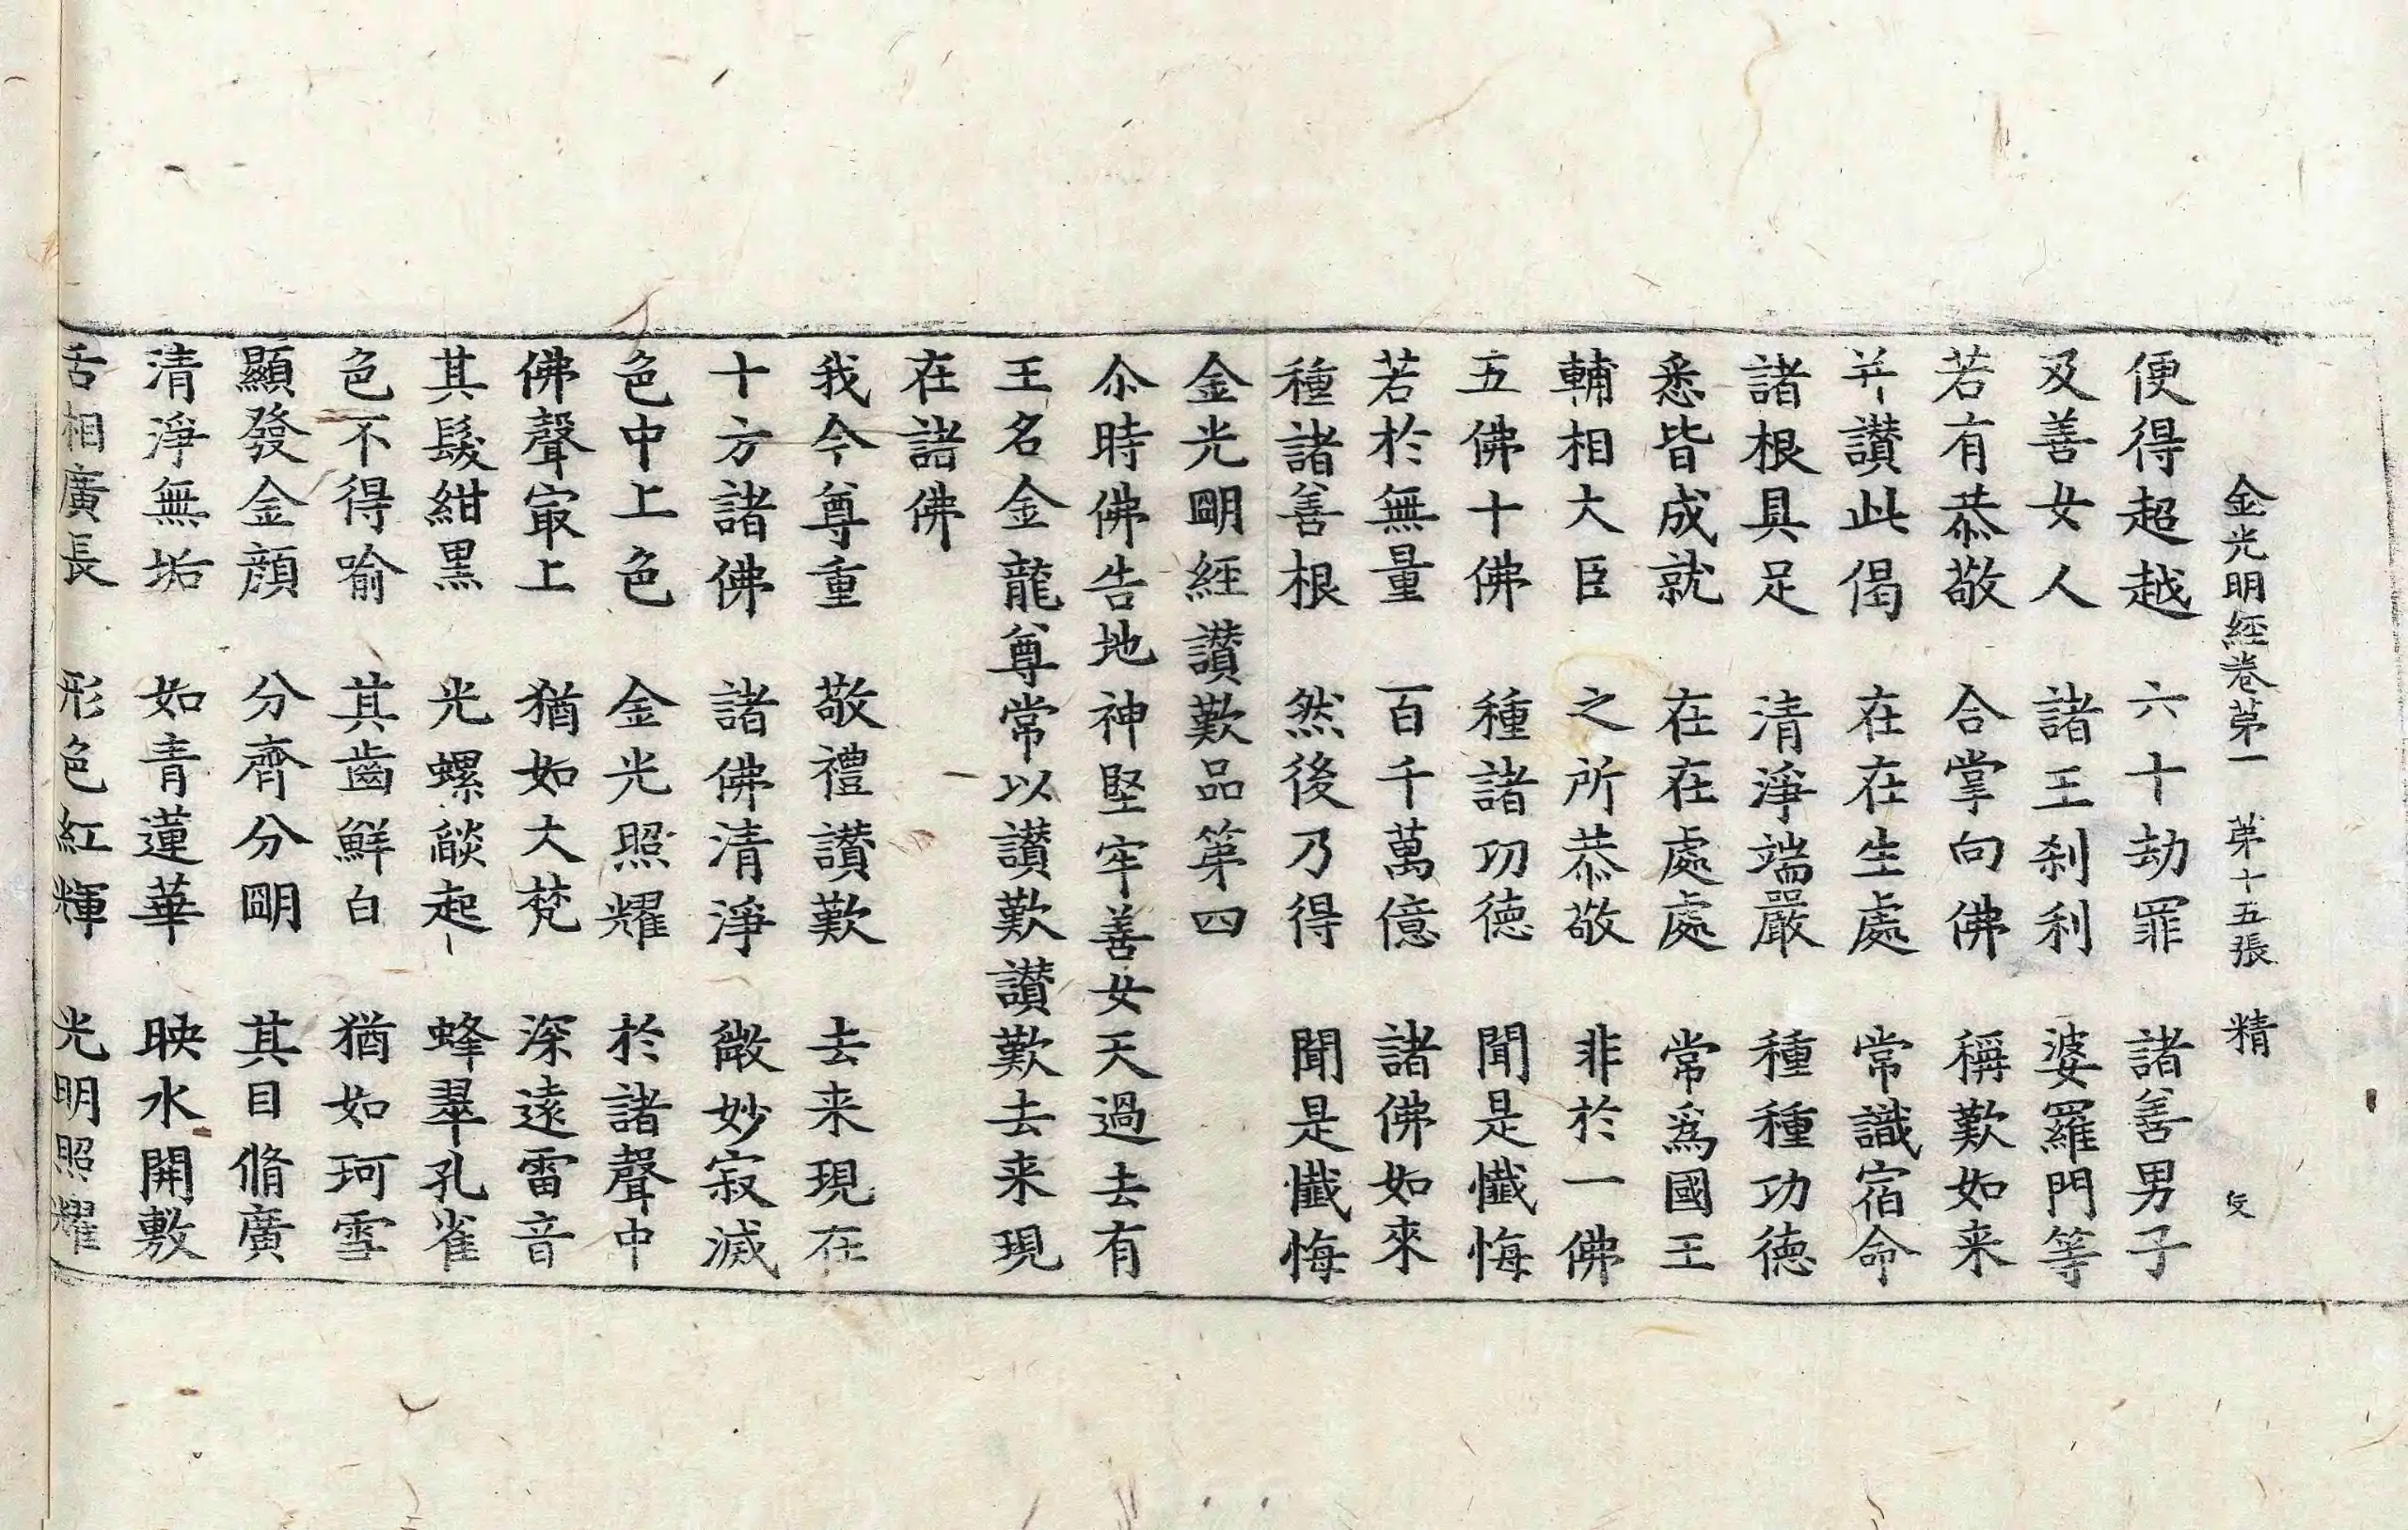 金光明経卷苐一　苐十五張　精
便得超越　六十劫罪　諸善男子
及善女人　諸王刹利　婆羅門等
若有恭敬　合掌向佛　稱歎如来
并讃此偈　在在生處　常識宿命
諸根具足　清淨端嚴　種種功德
悉皆成就　在在處處　常爲國王
輔相大臣　之所恭敬　非於一佛
五佛十佛　種諸功徳　聞是懺悔
若於無量　百千萬億　諸佛如來
種諸善根　然後乃得　聞是懺悔
金光朙経讃歎品第四
尒時佛告地神堅牢善女天過去有
王名金龍尊常以讃歎讃歎去来現
在諸佛
我今尊重　敬禮讃歎　去来現在
十方諸佛　諸佛清淨　微妙寂滅
色中上色　金光照耀　於諸聲中
佛聲㝡上　猶如大梵　深遠雷音
其髮紺黒　光螺𦦨起　蜂翠孔雀
色不得喻　其齒鮮白　猶如珂雪
顯發金顔　分齊分朙　其目脩廣
清淨無垢　如青蓮華　映水開敷
舌相廣長　形色紅輝　光明照耀